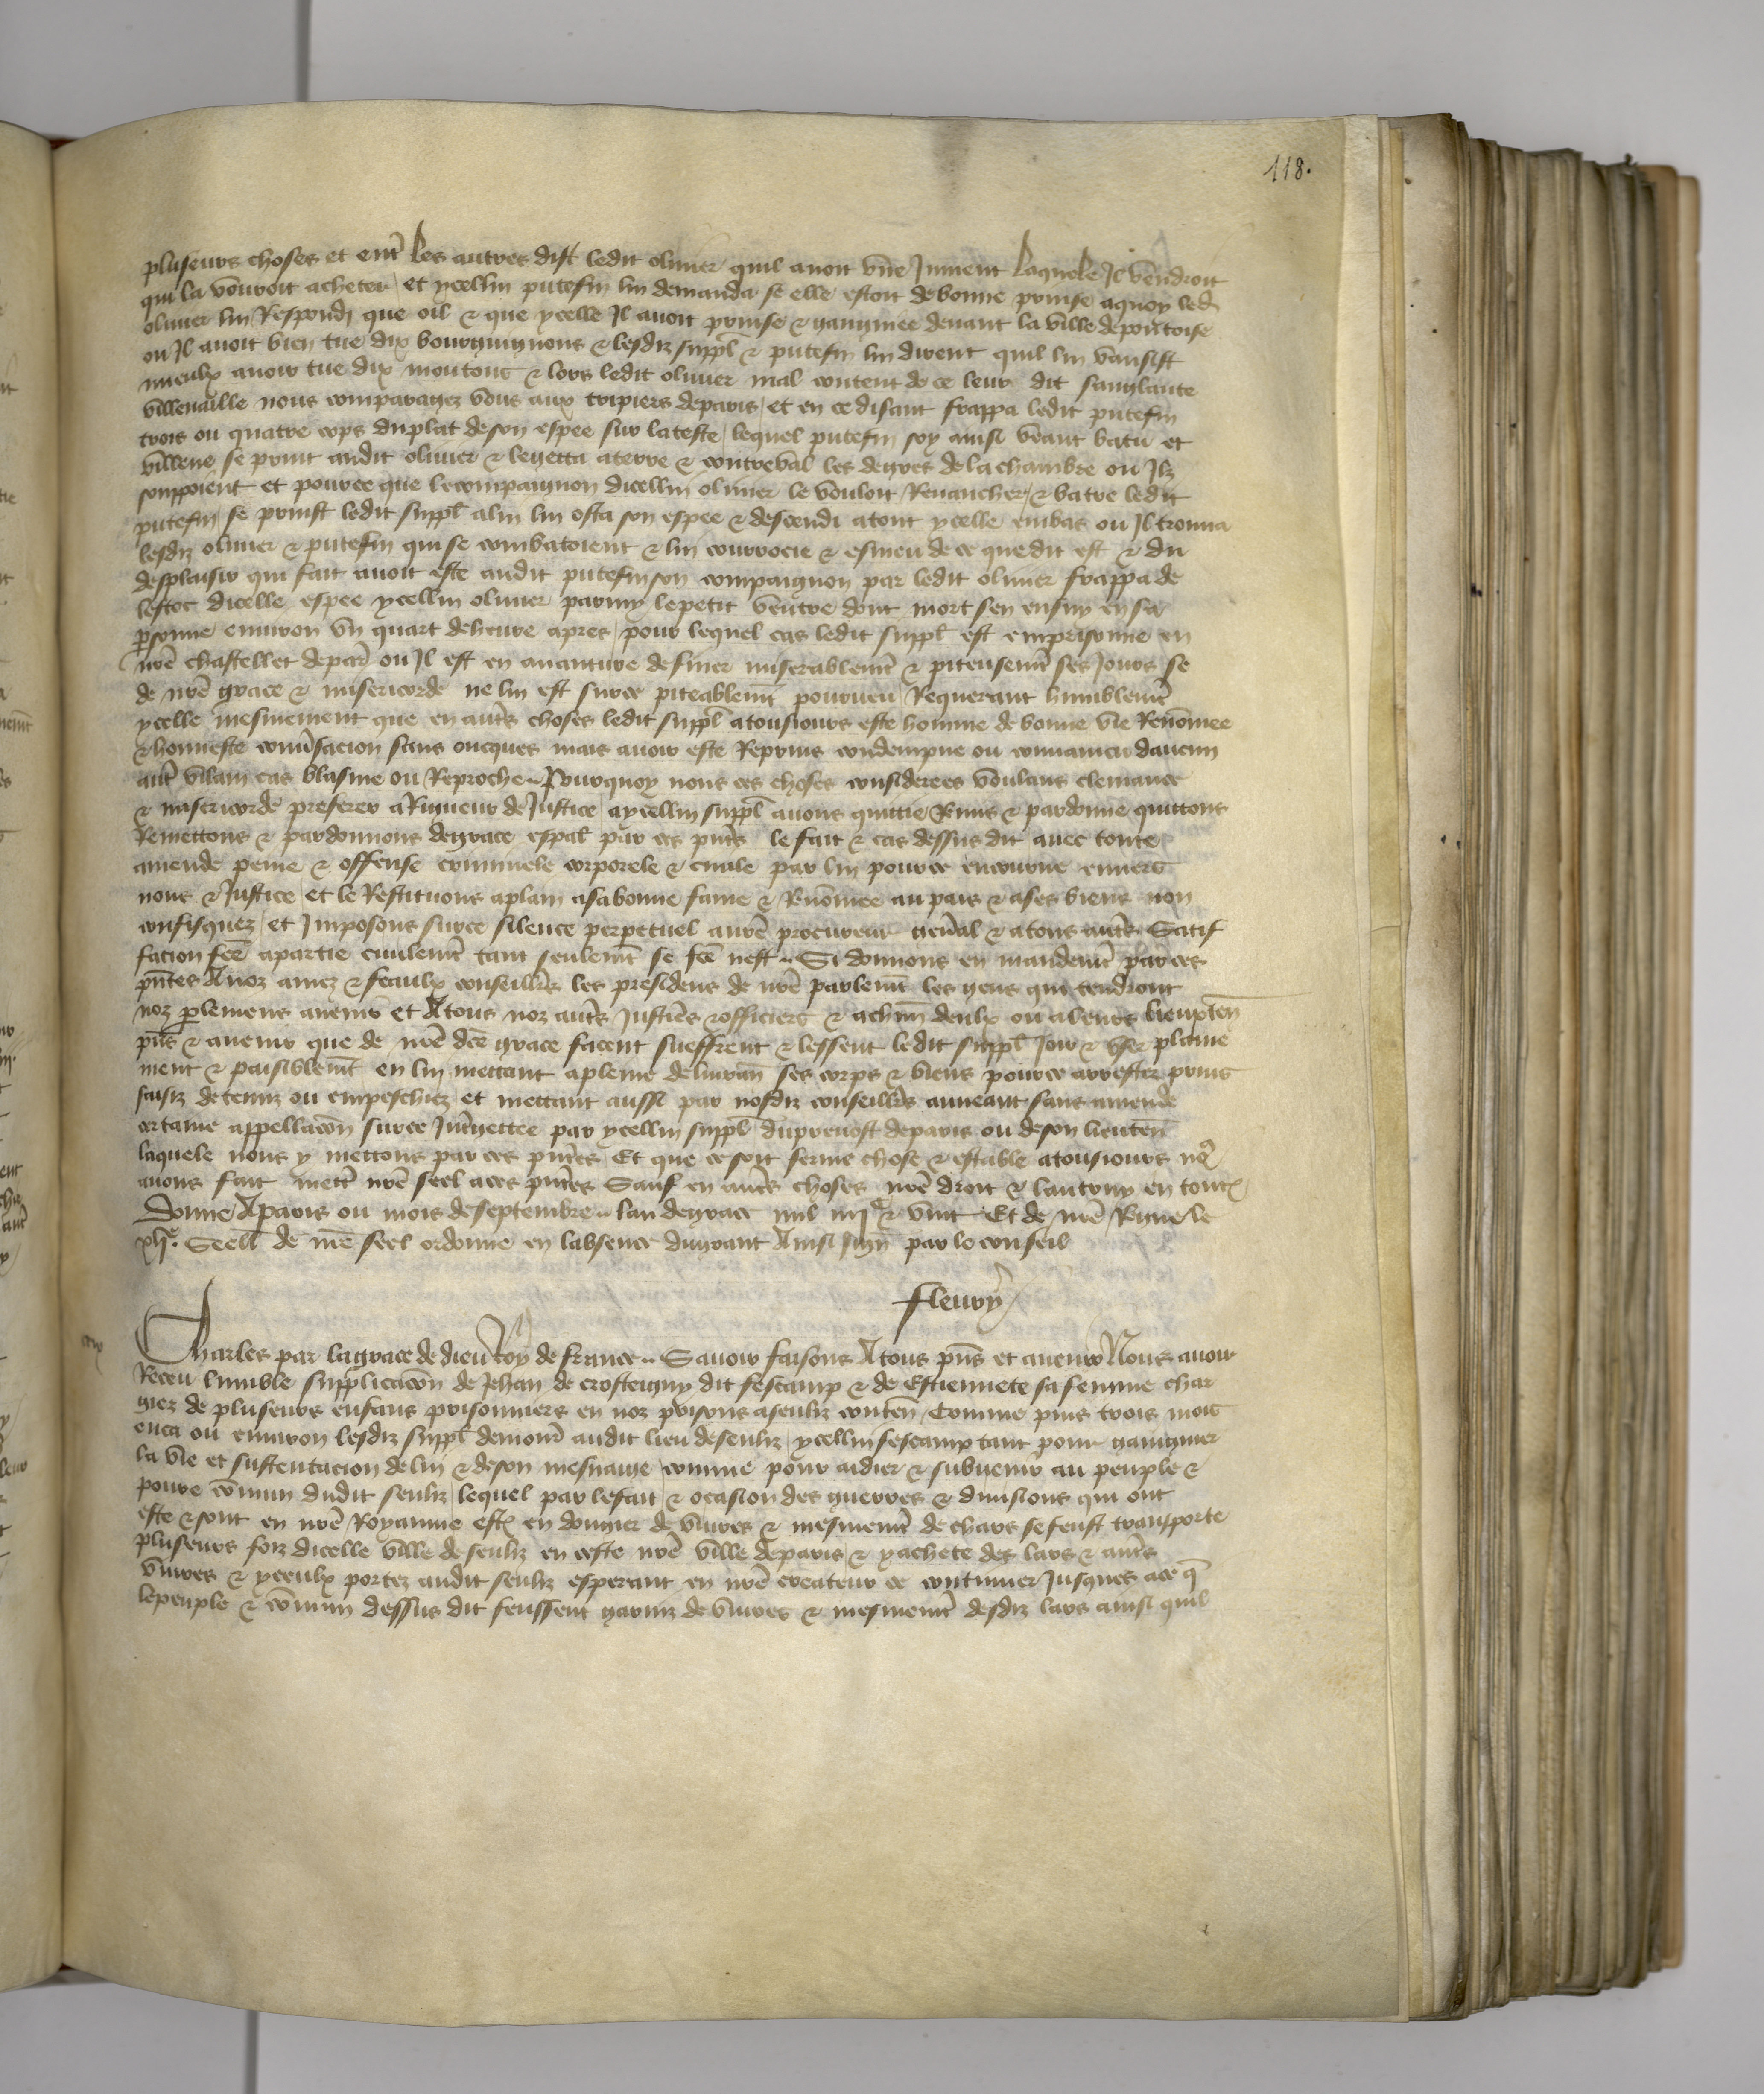 118.
pluseurs choses et entr̃ les autres dist ledit oliuier quil auoit vne Jument laquele Jl vendroit
qui la vouroit acheter et ycellui putefin lui demanda se elle estoit de bonne prinse aquoy led̃
oliuier lui Respondi que oil & que ycelle Jl auoit prinse & gangniee deuant la ville de pontoise
ou Jl auoit bien tue dix bourguignons & lesdiz suppl̃ & putefin lui dirent quil lui vausist
mieulx auoir tue dix moutons & lors ledit oliuier mal content de ce leur dit sanglante
villenaille nous comparagez vous aux tripiers de paris et en ce disant frappa ledit putefin
trois ou quatre cops du plat de son espee sur la teste lequel putefin soy ainsi veant batu et
villene se print audit oliuier & le getta a terre & contreval les degres de la chambre ou Jlz
souppoient et pource que le compaignon dicellui oliuier le vouloit Reuancher & batre ledit
putefin se prinst ledit suppl̃ a lui lui osta son espee & descendi atout ycelle embas ou Jl trouua
lesdiz oliuier & putefin qui se combatoient & lui courrocie & esmeu de ce que dit est & du
desplaisir qui fait auoit este audit putefin son compaignon par ledit oliuier frappa de
lestoc dicelle espee ycellui oliuier parmy le petit ventre dont mort sen ensuy en sa
ꝑsonne enuiron vn quart deheure apres pour lequel cas ledit suppl̃ est emprisonne en
nr̃e chastellet de par̃ ou Jl est en auanture de finer miserablem̃t & piteusem̃t ses Jours se
de nr̃e grace & misericorde ne lui est surce piteablem̃t pourueu Requerant humblem̃t
ycelle mesmement que en autr̃s choses ledit suppl̃ atousiours este homme de bonne vie Renõmee
& honneste conu̾sacion sans oncques mais auoir este Reprins condempne ou conuaincu daucun
autr̃ villain cas blasme ou Reproche Pourquoy nous ces choses considerees voulans clemance
& misericorde preferer a Rigueur de Justice aycellui suppl̃ auons quittie Remis & pardonne quittons
Remettons & pardonnons de grace espal̃ par ces pñtes le fait & cas dessus dit auec toute
amende peine & offense criminele corporele & ciuile par lui pource encourue enuers
nous & Justice et le Restituons aplain asa bonne fame & Renõmee au pais & ases biens non
confisquez et Jmposons surce silence perpetuel a nr̃e procureur gen̾al & a tous autr̃s Satif
facion fc̃e apartie ciuilem̃t tant seulem̃t se fc̃e nest Si donnons en mandem̃t par ces
pñtes A noz amez & feaulx conseillr̃s les presidens de nr̃e parlem̃t les gens qui tendront
noz ꝑlemens auenir et A tous noz autr̃s Justic̃s & officiers & a chũn deulx ou a leurs lieuxten̄
pñs & auenir que de nr̃e dc̃e grace facent sueffrent & lessent ledit suppl̃ Joir & vser plaine
ment & paisiblem̃t en lui mettant apleine deliuran̄ ses corps & biens pource arrestez prins
saisiz detenuz ou empeschiez et mettant aussi par nosdiz conseillr̃s anneant sans amende
certaine appellacõn surce Jnt̾gettee par ycellui suppl̃ du preuost de paris ou de son lieuten̄
laquele nous y mettons par ces pñtes Et que ce soit ferme chose & estable atousiours no9
auons fait mettr̃ nr̃e seel a ces pñtes Sauf en autr̃s choses nr̃e droit & lautruy en toutes
Donne A paris ou mois de septembre lan de grace mil iiijc & vint Et de nr̃e Regne le
xlje. Seell̃ de nr̃e seel ordonne en labsence du grant Ainsi sign̄ par le conseil
Fleury
Charles par la grace de dieu Roy de france Sauoir faisons A tous pñs et auenir Nous auoir
Receu lumble supplicacõn de Jehan de crosteigny dit fescamp & de Estiennete sa femme char
giez de pluseurs enfans prisonniers en noz prisons a senliz conten̄ Comme puis trois mois
enca ou enuiron lesdiz suppl̃ demour̃ audit lieu de senliz ycellui fescamp tant pour gaingnier
la vie et sustentacion de lui & de son mesnaige comme pour aidier & subuenir au peuple &
poure cõmun dudit senliz lequel par le fait & ocasion des guerres & diuisions qui ont
este & sont en nr̃e Royaume est en dangier de viures & mesmem̃t de chars se feust transporte
pluseurs foiz dicelle ville de senliz en ceste nr̃e ville de paris & y achete des lars & autr̃s
viures & yceulx portez audit senliz esperant en nr̃e createur ce continuer Jusques ace q̃
le peuple & cõmun dessus dit feussent garniz de viures & mesmem̃t desdiz lars ainsi quil